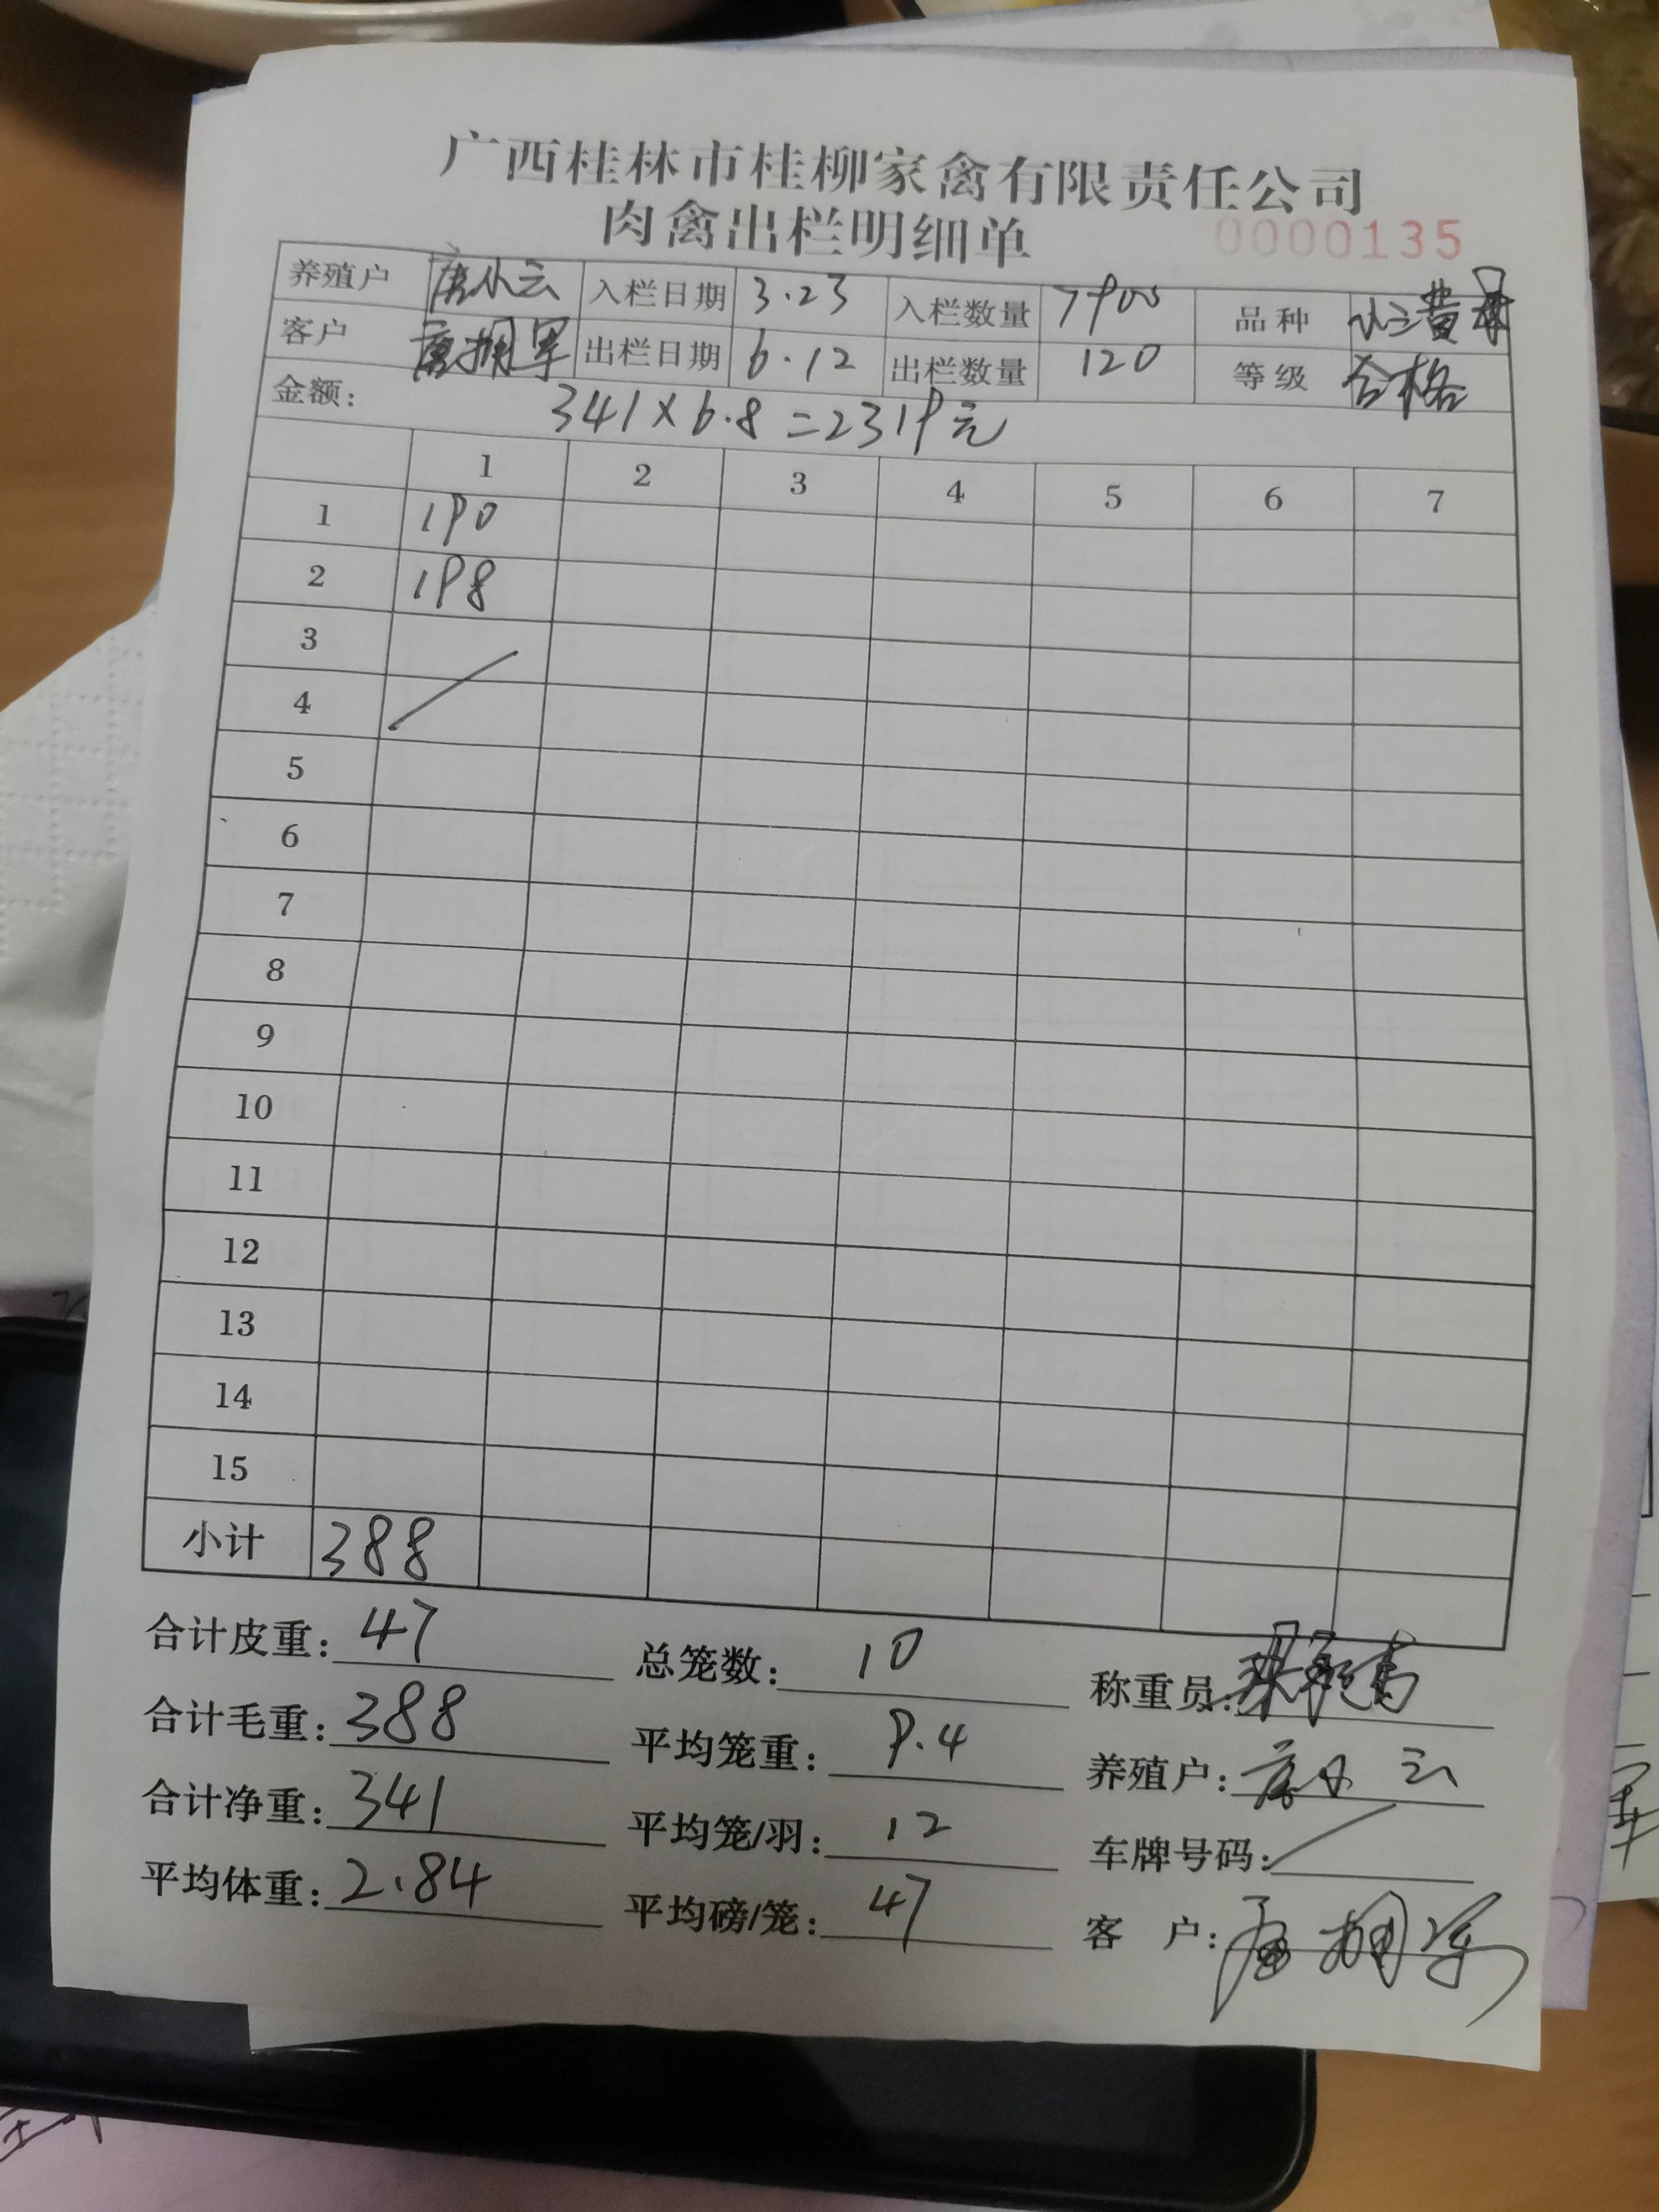 广西桂林市桂柳家禽有限责任公司
肉禽出栏明细单 0000135
养殖户 唐小云 入栏日期 3.23 入栏数量 7900 品种
客户 唐拥军 出栏日期 6.12 出栏数量 120 等级 合格
金额: 341×6.8=2319元
1 2 3 4 5 6 7
1 190
2 198
3
4
5
6
7
8
9
10
11
12
13
14
15
小计 388
合计皮重: 47 总笼数: 10 称重员:
合计毛重: 388 平均笼重: 9.4 养殖户: 唐小云
合计净重: 341 平均笼/羽: 12 车牌号码:
平均体重: 2.84 平均磅/笼: 47 客户: 唐拥军